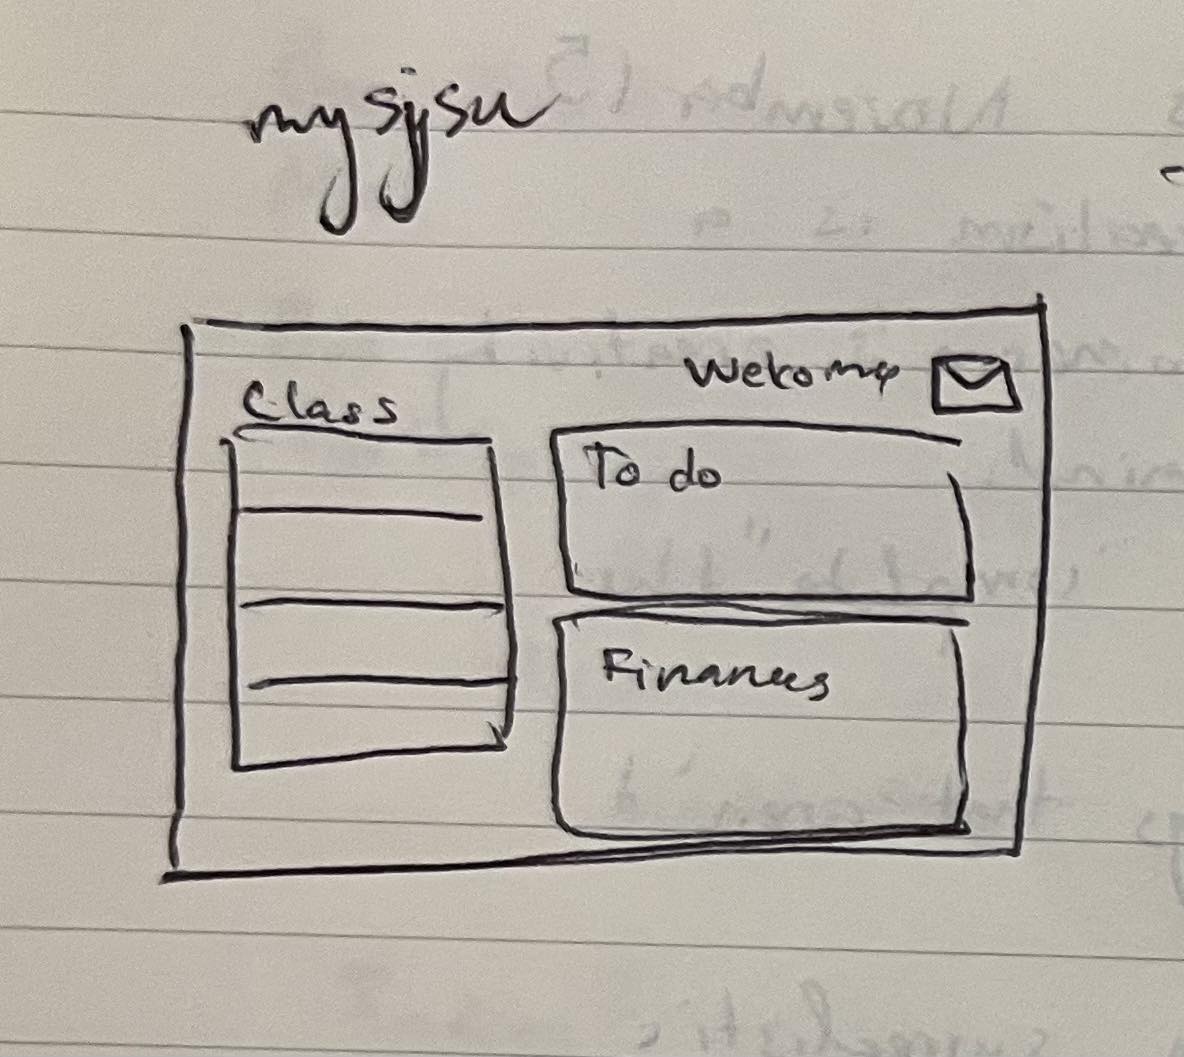 my sjsu
Welcome
Class
To do
Finances